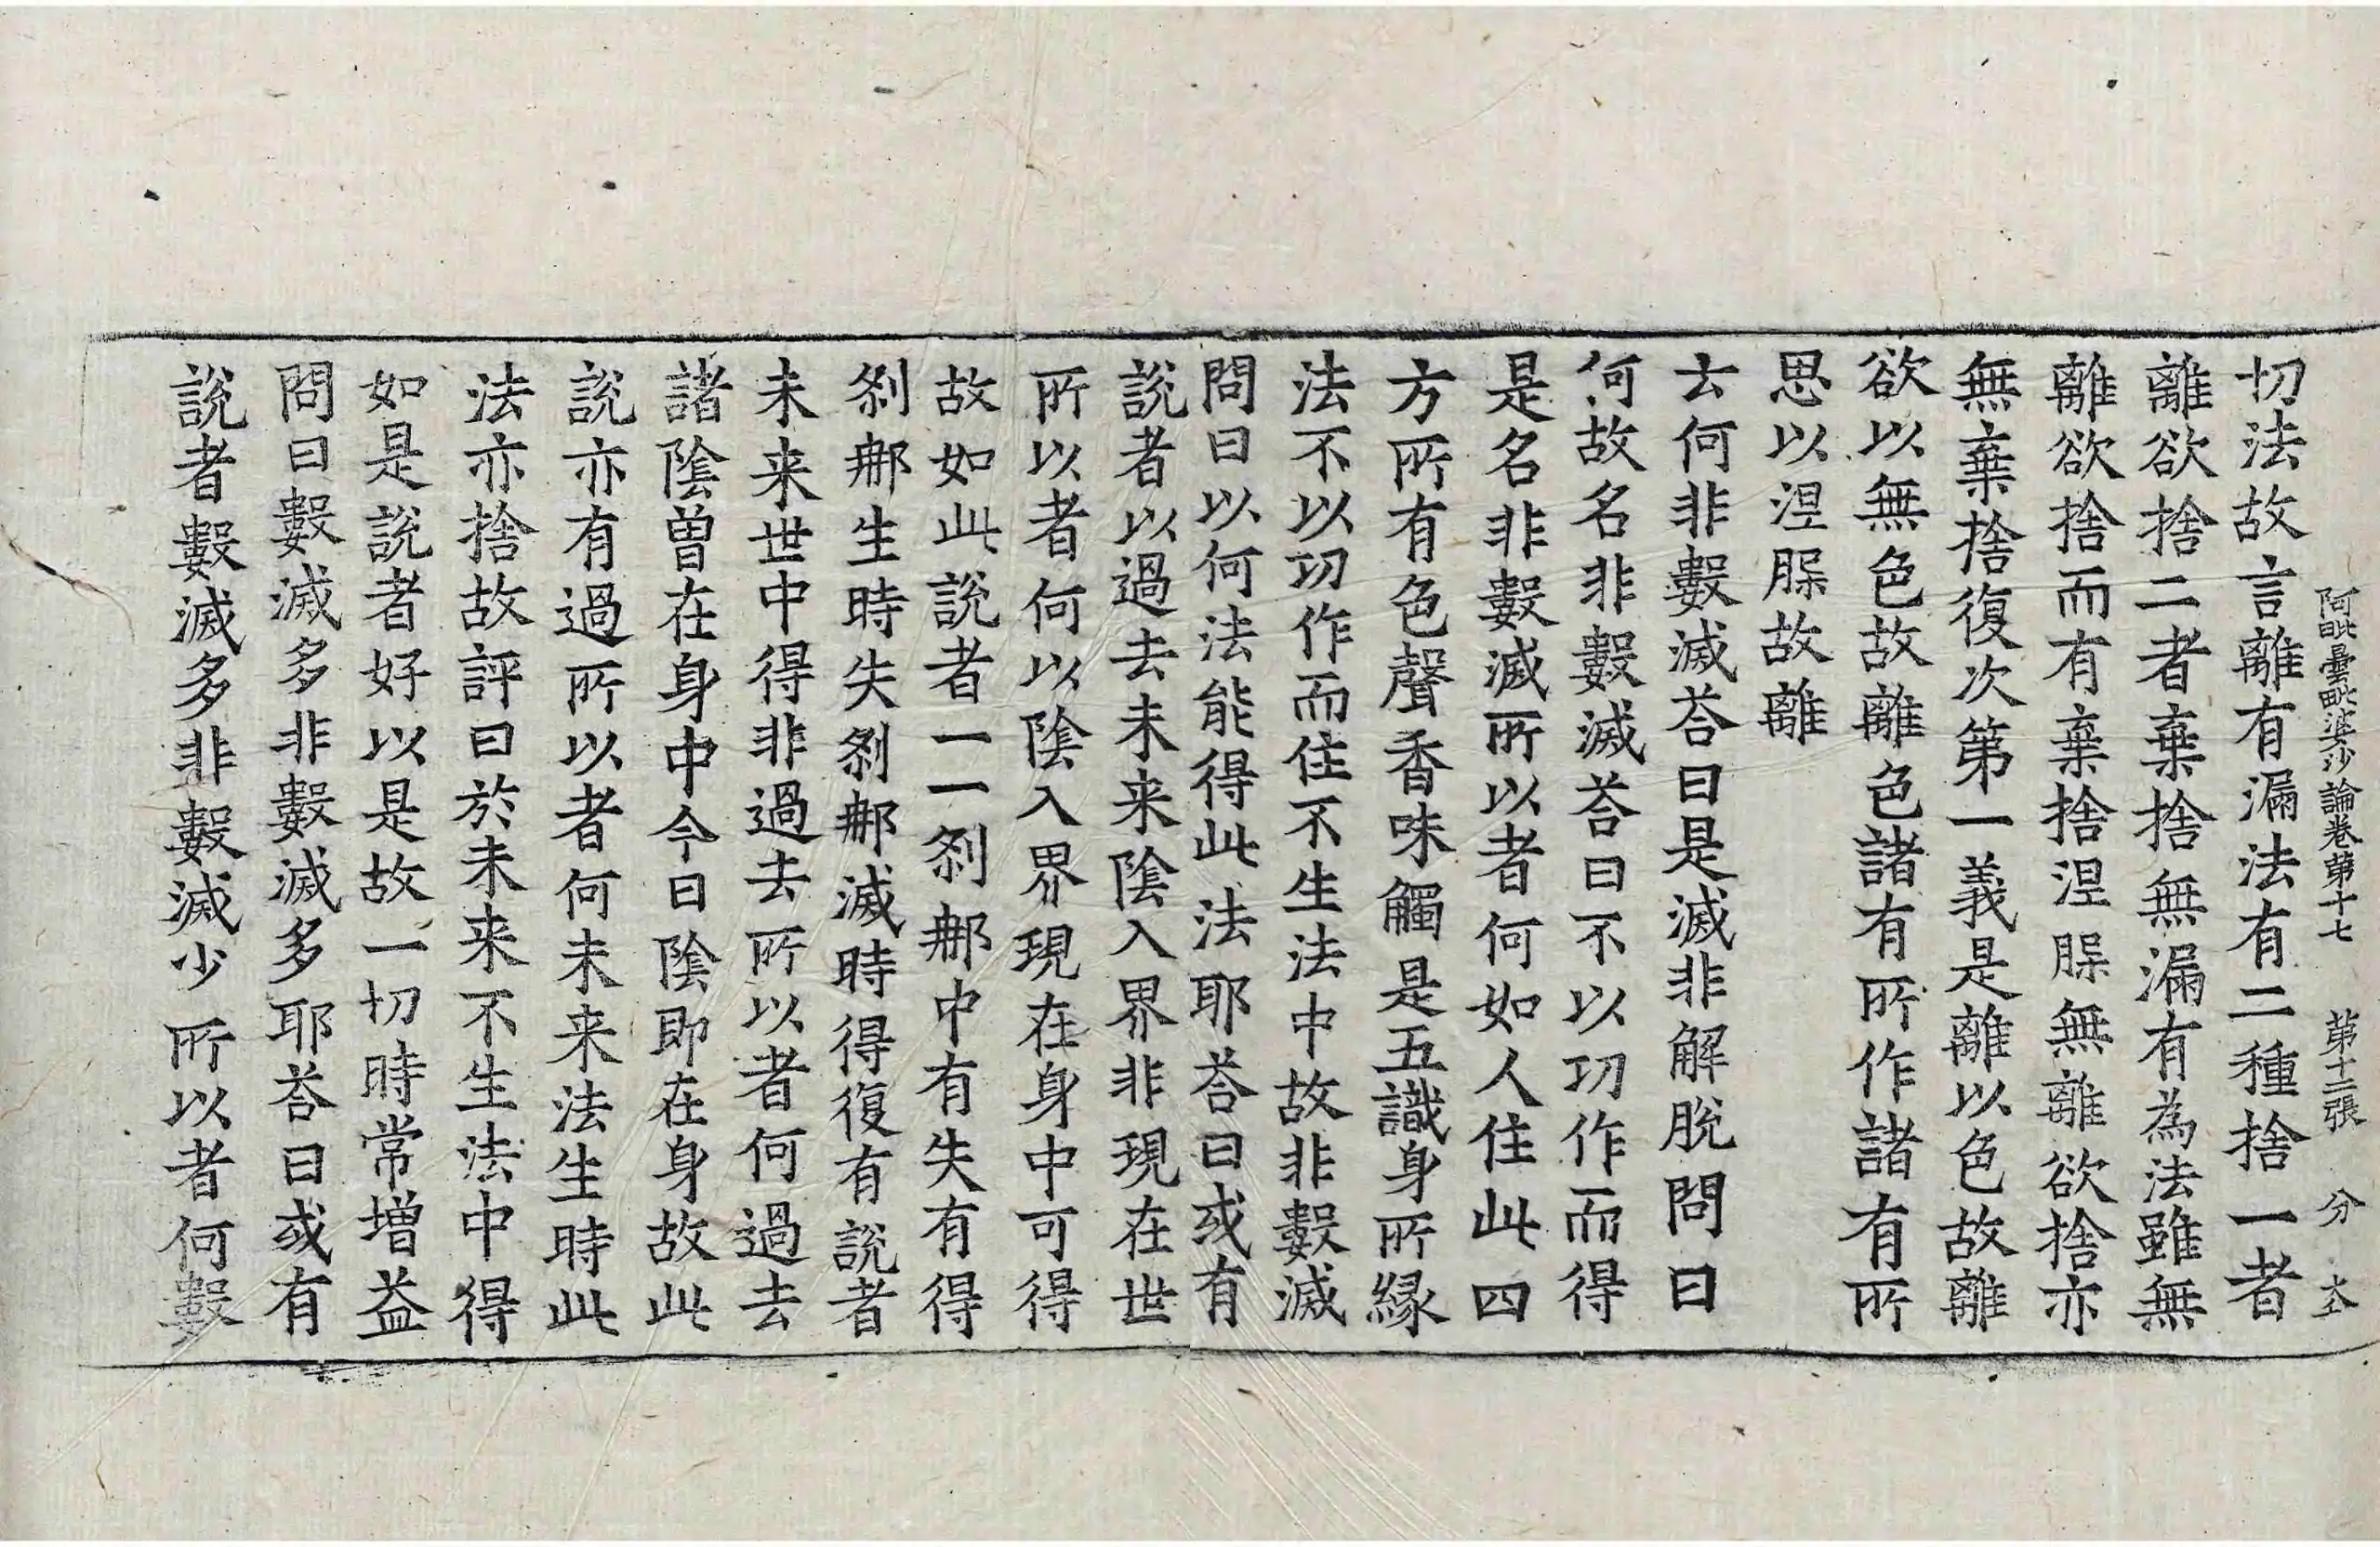 阿毗曇毗婆沙論卷第十七 第十二張 分
切法故言離有漏法有二種捨一者
離欲捨二者棄捨無漏有為法雖無
離欲捨而有棄捨涅槃無離欲捨亦
無棄捨復次第一義是離以色故離
欲以無色故離色諸有所作諸有所
思以涅槃故離
云何非數滅荅曰是滅非解脫問曰
何故名非數滅荅曰不以功作而得
是名非數滅所以者何如人住此四
方所有色聲香味觸是五識身所緣
法不以功作而住不生法中故非數滅
問曰以何法能得此法耶荅曰或有
說者以過去未来陰入界非現在世
所以者何以陰入界現在身中可得
故如此說者一一剎那中有失有得
剎那生時失剎那滅時得復有說者
未来世中得非過去所以者何過去
諸陰曾在身中今日陰即在身故此
說亦有過所以者何未来法生時此
法亦捨故評曰於未来不生法中得
如是說者好以是故一切時常增益
問曰數滅多非數滅多耶荅曰或有
說者數滅多非數滅少所以者何數